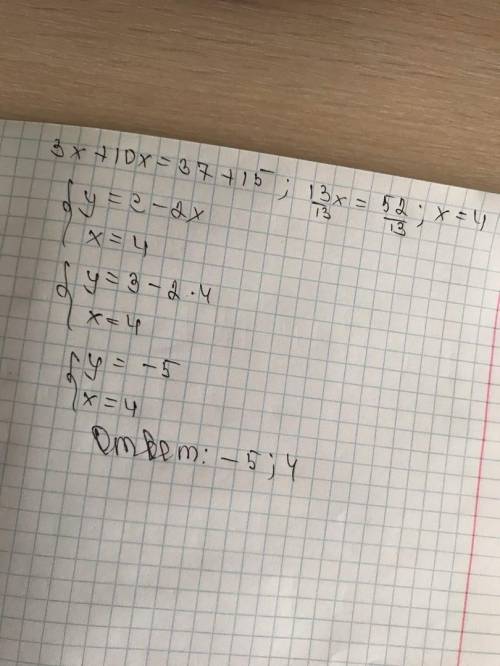 3x+10x=37+15; 13/13 x = 52/13; x=4
{ y=3-2x
x=4
{ y=3-2·4
x=4
{ y=-5
x=4
Ответ: -5; 4